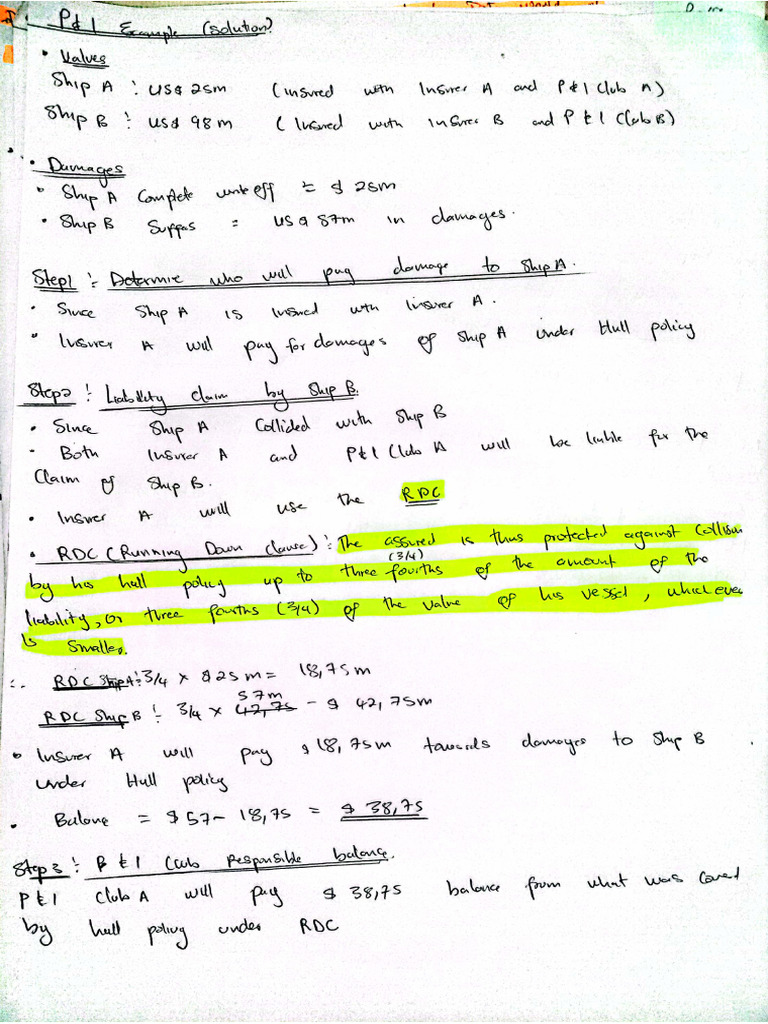 P&I Example (Solution)
• Values
Ship A : US$ 25m (insured with Insurer A and P&I Club A)
Ship B : US$ 98m (Insured with insurer B and P&I Club B)
• Damages
• Ship A Complete write off = $ 25m
• Ship B Suffas = US$ 57m in damages.
Step1 : Determine who will pay damage to Ship A.
• Since Ship A is insured with insurer A.
• Insurer A will pay for damages of Ship A under Hull policy
Step2 : Liability claim by Ship B.
• Since Ship A Collided with Ship B
• Both Insurer A and P&I Club A will be liable for the
Claim of Ship B.
• Insurer A will use the RDC
• RDC (Running Down Clause) : The assured is thus protected against Collision
(3/4)
by his hull policy up to three fourths of the amount of the
liability, or three fourths (3/4) of the value of his vessel, whichever
is smaller.
∴ RDC Ship A : 3/4 x $25m = 18,75m
57m
RDC Ship B : 3/4 x 42,75 - $ 42,75m
• Insurer A will pay $ 18,75m towards damages to Ship B
under Hull policy
• Balance = $57 - 18,75 = $ 38,75
Step 3 : P&I Club Responsible balance.
P&I Club A will pay $ 38,75 balance from what was Covered
by hull policy under RDC